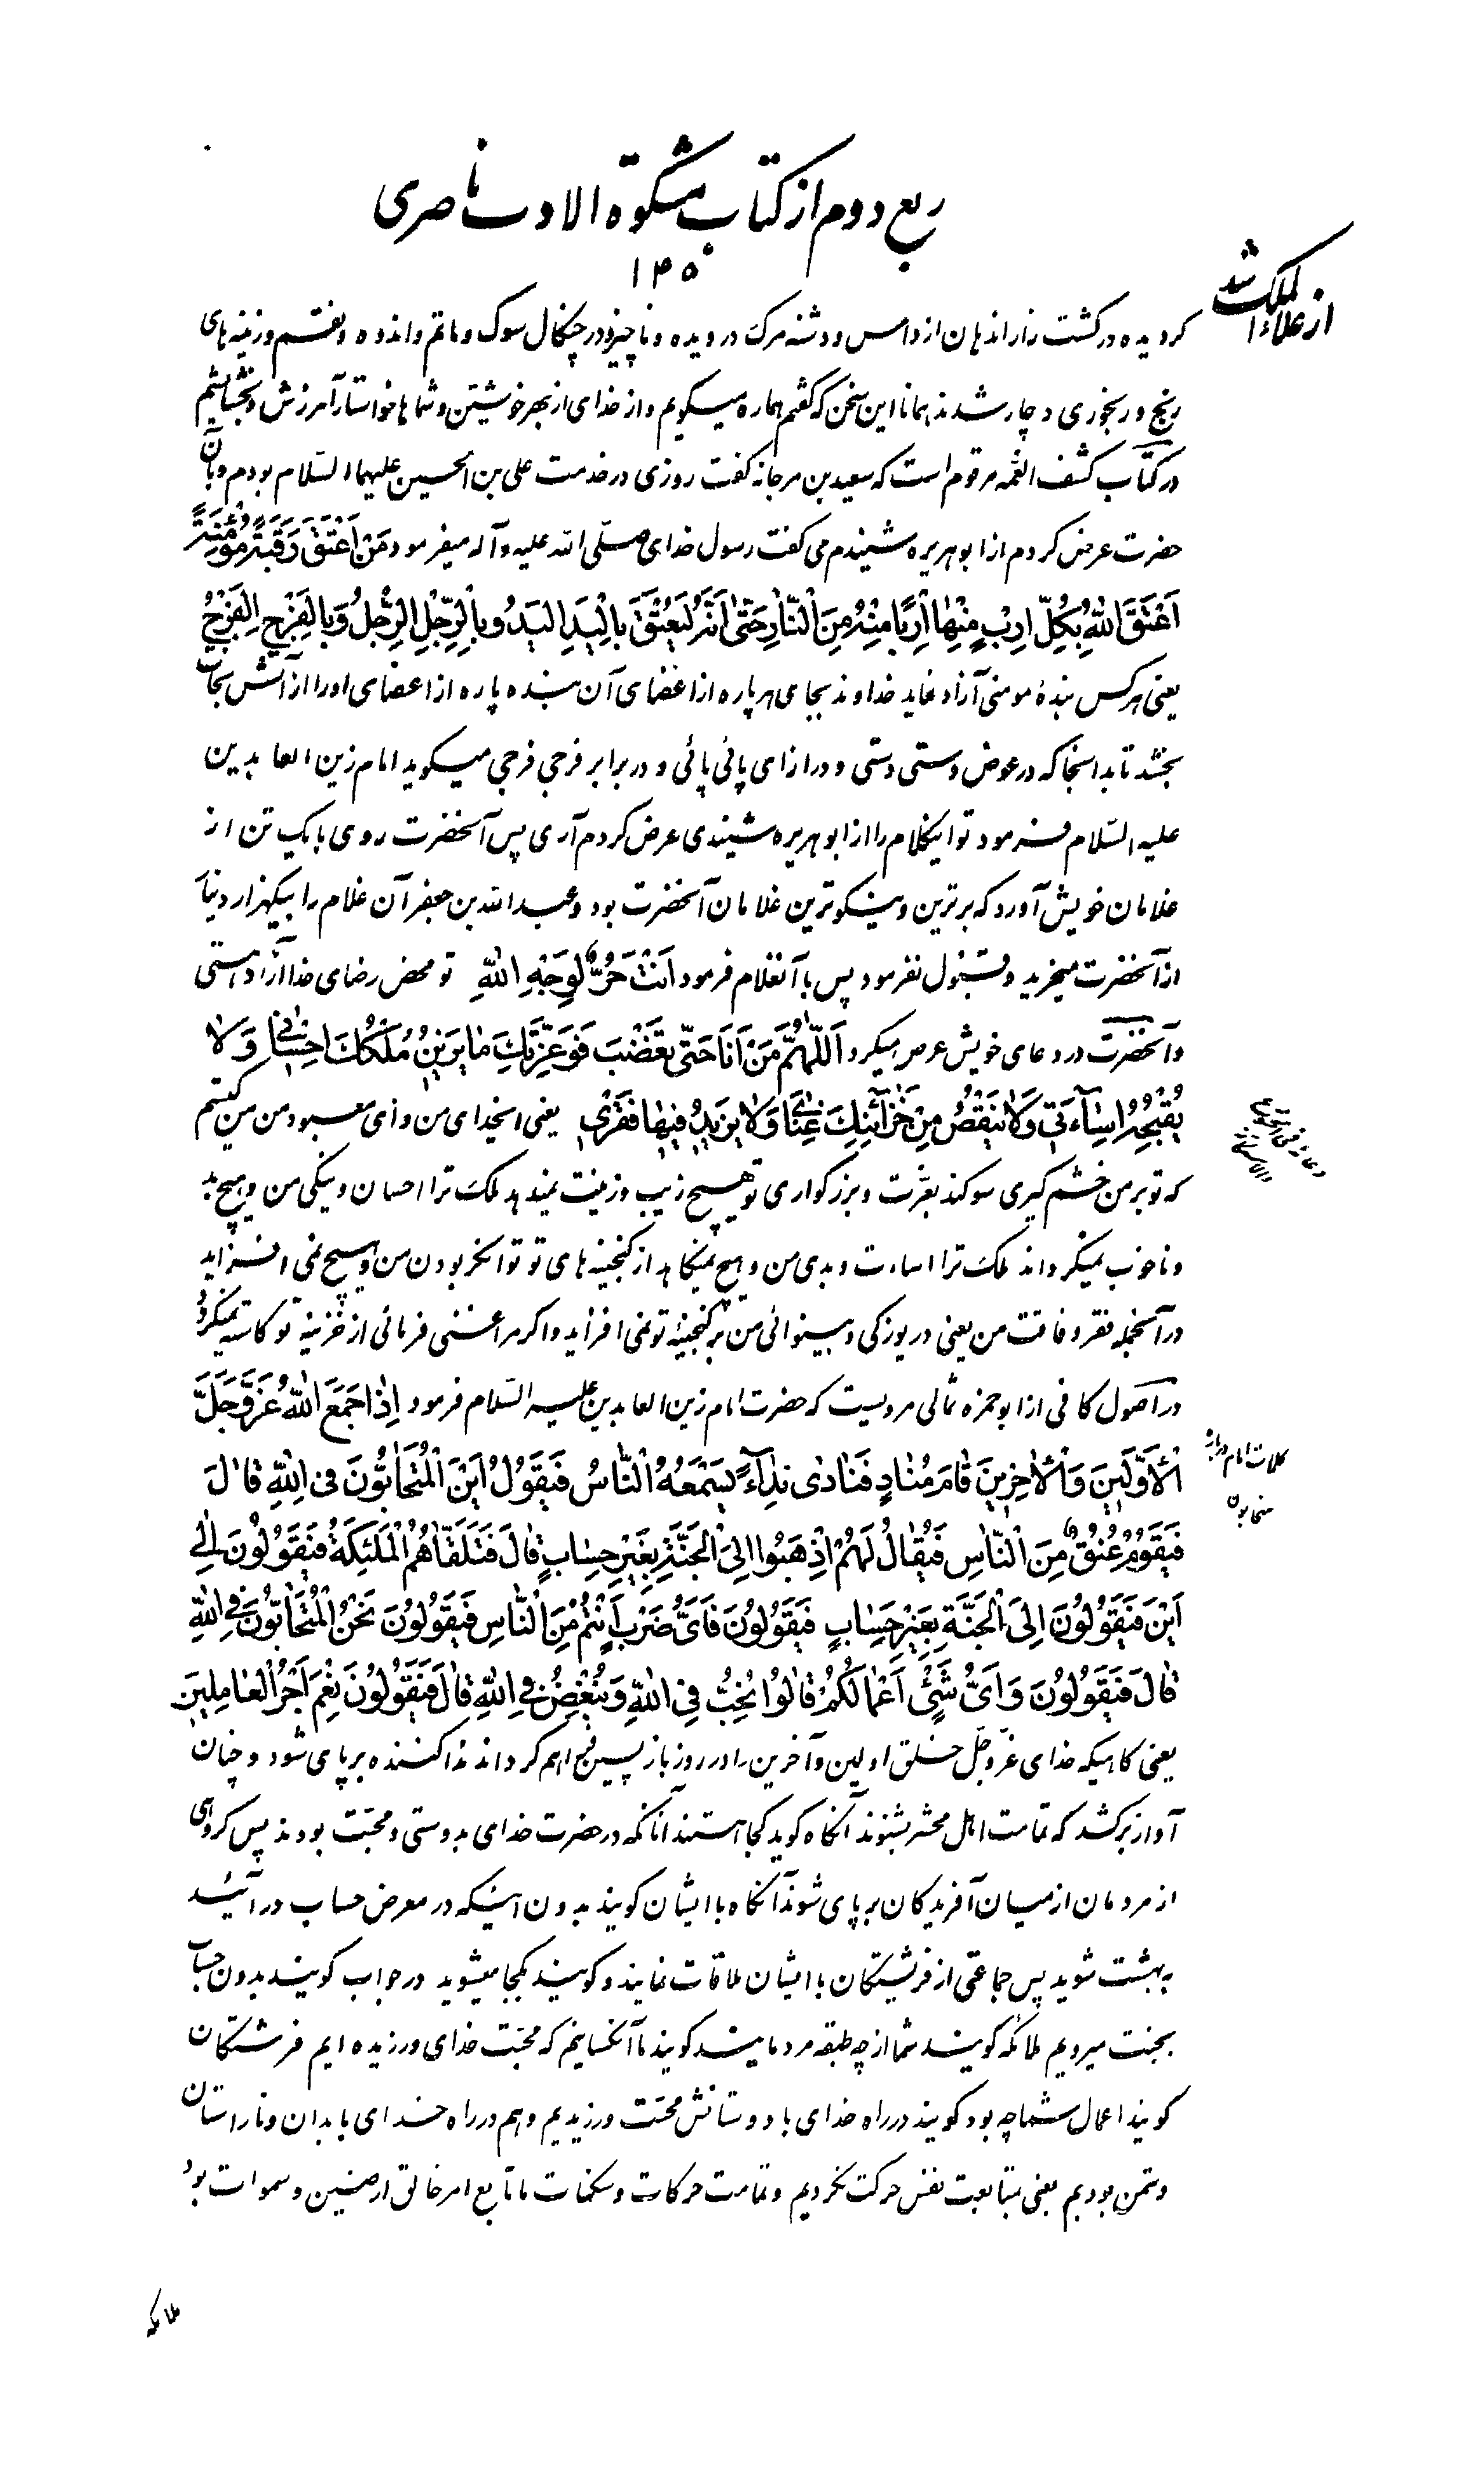 ربع دوم از کتاب مشکوة الادب ناصری
۱۴۵
از علاء الملک شد
کردیده در کشت زار اندهان از داس و دشنه مرک درویده و ناچیز و در چنکال سوک و ماتم و اندوه و نقم و رزینه های
رنج و رنجوری دچار شدند همانا این سخن که گفتم هماره میگویم و از خدای از بهر خویشتن و شما ها خواستار آمرزش و بخشایشم
در کتاب کشف الغمه مرقوم است که سعید بن مرجانه کفت روزی در خدمت علی بن الحسین علیهما السّلام بودم و بآن
حضرت عرض کردم از ابو هریره شنیدم می کفت رسول خدای صلّی الله علیه و آله میفرمود مَنْ اَعْتَقَ رَقَبَةً مُؤْمِنَةً
اَعْتَقَ اللهُ بِکُلِّ اِرْبٍ مِنْها اِرْبًا مِنْهُ مِنَ النّارِ حَتّی اَنَّهُ لَیُعْتِقُ بِالْیَدِ الْیَدَ وَ بِالرِّجْلِ الرِّجْلَ وَ بِالْفَرْجِ الْفَرْجَ
یعنی هر کس بندهٔ مومنی آزاد نماید خداوند بجای هر پاره از اعضای آن بنده پاره از اعضای او را از آتش نجات
بخشد تا بدانجا که در عوض دستی دستی و در ازای پائی پائی و در برابر فرجی فرجی میکوید امام زین العابدین
علیه السّلام فرمود تو اینکلام را از ابو هریره شنیدی عرض کردم آری پس آنحضرت روی با یک تن از
غلامان خویش آورد که برترین و نیکوترین غلامان آنحضرت بود و عبدالله بن جعفر آن غلام را بیکهزار دینار
از آنحضرت میخرید و قبول نفرمود پس با آنغلام فرمود اَنْتَ حُرٌّ لِوَجْهِ اللهِ تو محض رضای خدا آزاد هستی
و آنحضرت در دعای خویش عرض میکرد اَللّهُمَّ مَنْ اَنَا حَتّی تَغْضَبَ فَوَعِزَّتِکَ ما یَزِینُ مُلْکَکَ اِحْسانی وَ لا
یُقَبِّحُهُ اِساءَتی وَ لا یَنْقُصُ مِنْ خَزائِنِکَ غِنایَ وَ لا یَزیدُ فیها فَقْری یعنی ایخدای من و ای معبود من من کیستم
که تو بر من خشم کیری سوکند بعزّت و بزرکواری تو هیچ زیب و زینت نمیدهد ملک ترا احسان و نیکی من و هیچ بد
و ناخوب نمیکرداند ملک ترا اساءت و بدی من و هیچ نمیکاهد از کنجینه های تو توانکر بودن من و هیچ نمی افزاید
در آنجمله فقر و فاقت من یعنی دریوزکی و بینوائی من بر کنجینهٔ تو نمی افزاید و اکر مرا غنی فرمائی از خزینه تو کاسته نمیکردد
در اصول کافی از ابو حمزه ثمالی مرویست که حضرت امام زین العابدین علیه السّلام فرمود اِذا جَمَعَ اللهُ عَزَّ وَ جَلَّ
الْاَوَّلینَ وَ الْاخِرینَ قامَ مُنادٍ فَنادی نِداءً یَسْمَعُهُ النّاسُ فَیَقُولُ اَیْنَ الْمُتَحابُّونَ فِی اللهِ قالَ
فَیَقُومُ عُنُقٌ مِنَ النّاسِ فَیُقالُ لَهُمْ اِذْهَبُوا اِلَی الْجَنَّةِ بِغَیْرِ حِسابٍ قالَ فَتَلَقّاهُمُ الْمَلئِکَةُ فَیَقُولُونَ اِلی
اَیْنَ فَیَقُولُونَ اِلَی الْجَنَّةِ بِغَیْرِ حِسابٍ فَیَقُولُونَ فَاَیُّ ضَرْبٍ اَنْتُمْ مِنَ النّاسِ فَیَقُولُونَ نَحْنُ الْمُتَحابُّونَ فِی اللهِ
قالَ فَیَقُولُونَ وَ اَیُّ شَیْئٍ اَعْمالُکُمْ قالُوا نُحِبُّ فِی اللهِ وَ نُبْغِضُ فِی اللهِ قالَ فَیَقُولُونَ نِعْمَ اَجْرُ الْعامِلینَ
یعنی کاهیکه خدای عزّ و جلّ خلق اولین و آخرین را در روز بازپسین فراهم کرداند ندا کننده بر پای شود و چنان
آواز بر کشد که تمامت اهل محشر بشنوند آنکاه کوید کجا هستند آنانکه در حضرت خدای بدوستی و محبّت بودند پس کروهی
از مردمان از میان آفریدکان بر پای شوند آنکاه با ایشان کویند بدون اینکه در معرض حساب در آئید
به بهشت شوید پس جماعتی از فرشتکان با ایشان ملاقات نمایند و کویند بکجا میشوید در جواب کویند بدون حساب
بجنت میرویم ملائکه کویند شما از چه طبقه مردمانید کویند ما آنکسانیم که محبّت خدای ورزیده ایم فرشتکان
کویند اعمال شما چه بود کویند در راه خدای با دوستانش محبّت ورزیدیم و هم در راه خدای با بدان و ناراستان
دشمن بودیم یعنی بمتابعت نفس حرکت نکردیم و تمامت حرکات و سکنات ما تابع امر خالق ارضین و سموات بود
کلمات امام درباره
متحابون
ملائکه